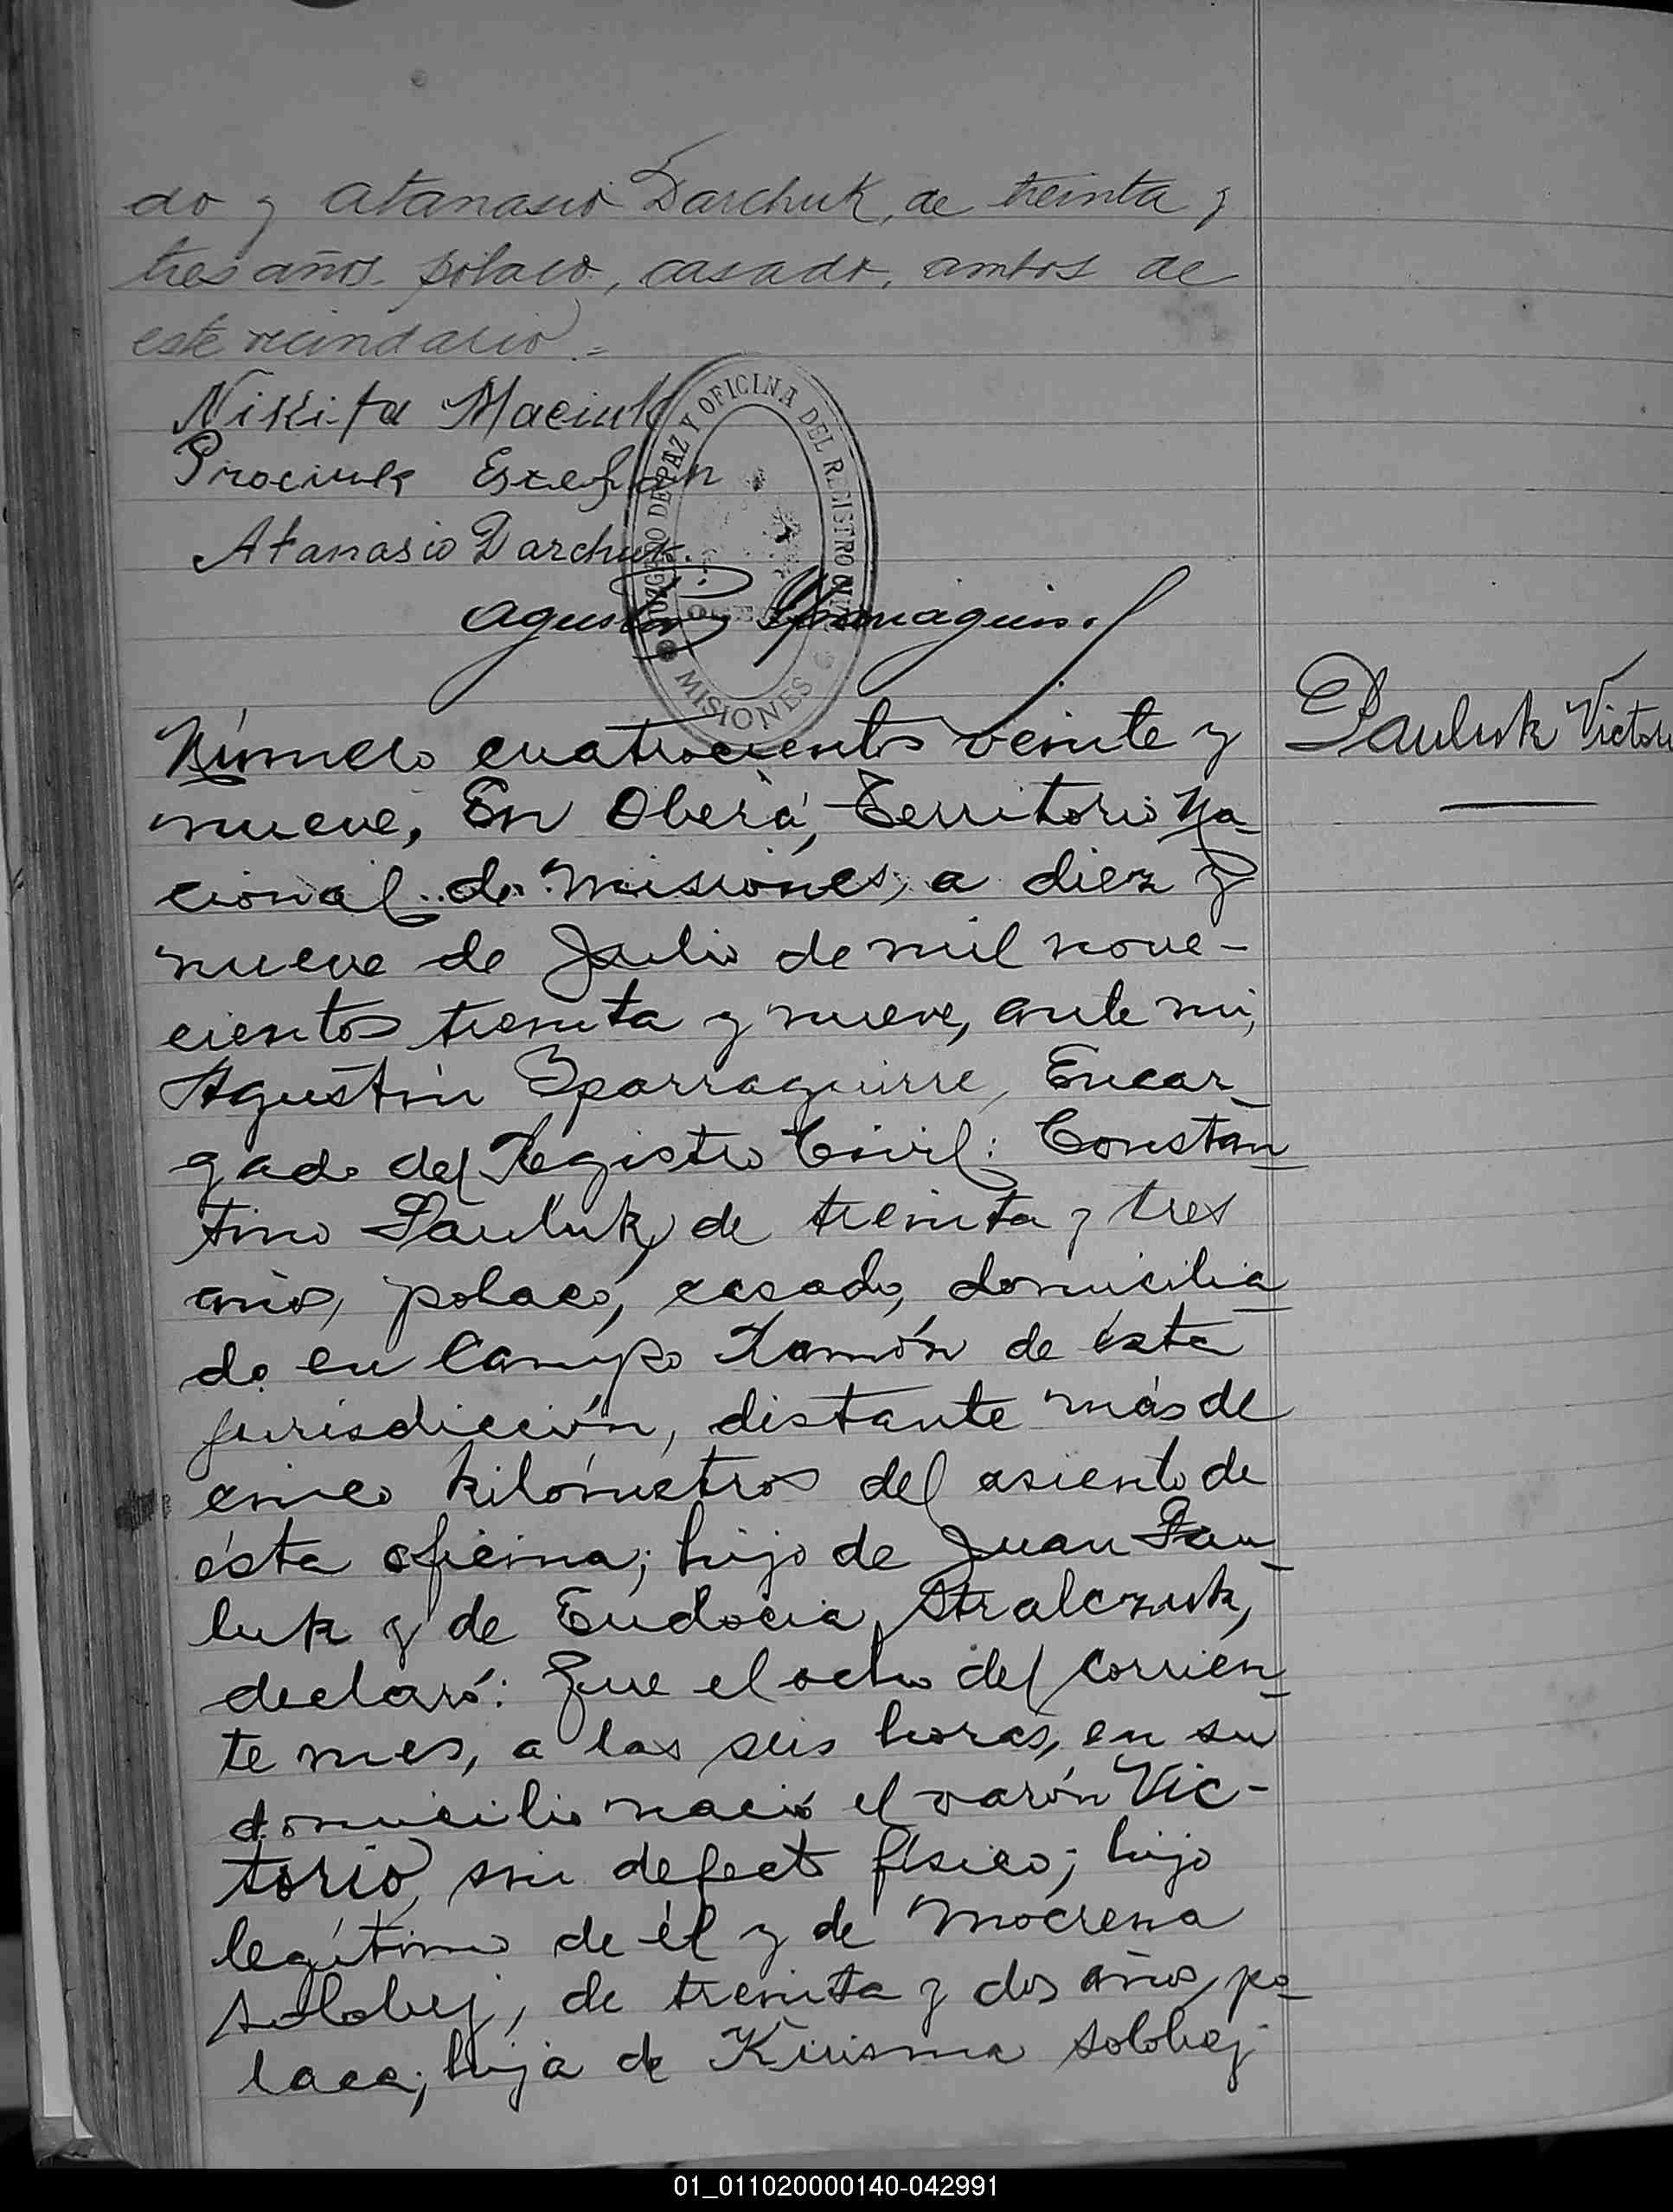 do y Atanasio Darchuk, de treinta y
tres años, polaco, casado, ambos de
este vecindario.=
Nikita Maciuk
Prociuk Estefan
Atanasio Darchuk.
Agustín Yparraguirre
JUZGADO DE PAZ Y OFICINA DEL REGISTRO CIVIL
MISIONES
Número cuatrocientos veinte y
Pauluk Victorio
nueve, En Oberá, Territorio Na-
cional de Misiones, a diez y
nueve de Julio de mil nove-
cientos treinta y nueve, ante mi,
Agustín Yparraguirre, Encar-
gado del Registro Civil: Constan-
tino Pauluk, de treinta y tres
años, polaco, casado, domicilia-
do en Campo Ramón de ésta
jurisdicción, distante más de
cinco kilómetros del asiento de
ésta oficina; hijo de Juan Pau-
luk y de Eudocia Stralczuk,
declaró: Que el ocho del corrien-
te mes, a las seis horas, en su
domicilio nació el varón Vic-
torio, sin defecto físico; hijo
legítimo de él y de Mocrena
Solobej, de treinta y dos años, po-
laca; hija de Kirisma Solobej
01_011020000140-042991